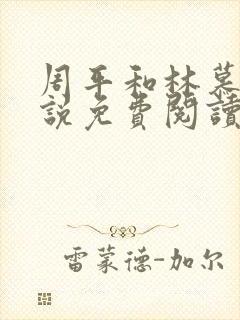 周平和林慕
說免費閱讀
雷蒙德-加尔